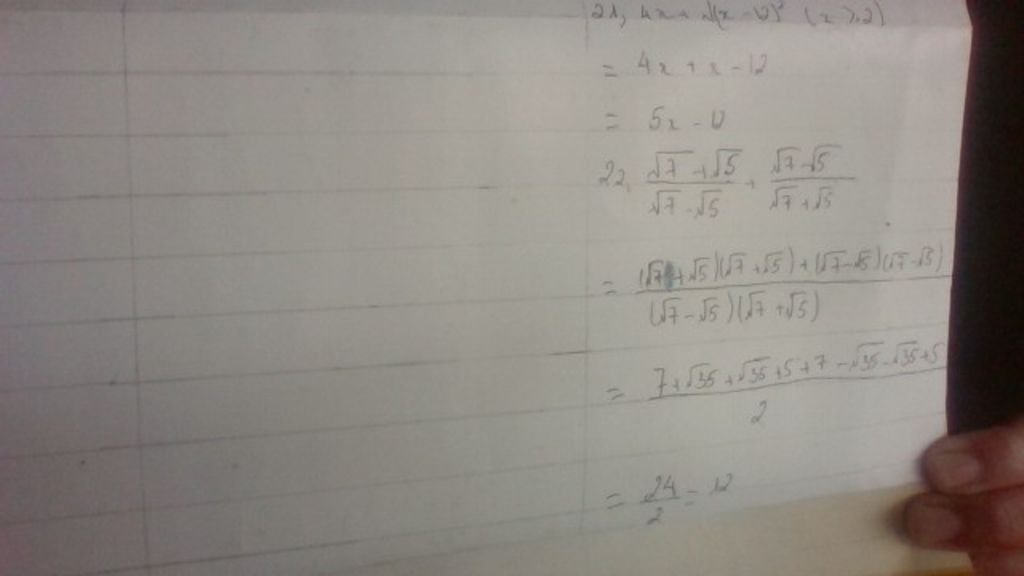 21, 4x + √(x - 12)² (x ≥ 2)
= 4x + x - 12
= 5x - 12
22, (√7 + √5)/(√7 - √5) + (√7 - √5)/(√7 + √5)
= ((√7 + √5)(√7 + √5) + (√7 - √5)(√7 - √5))/((√7 - √5)(√7 + √5))
= (7 + √35 + √35 + 5 + 7 - √35 - √35 + 5)/2
= 24/2 = 12